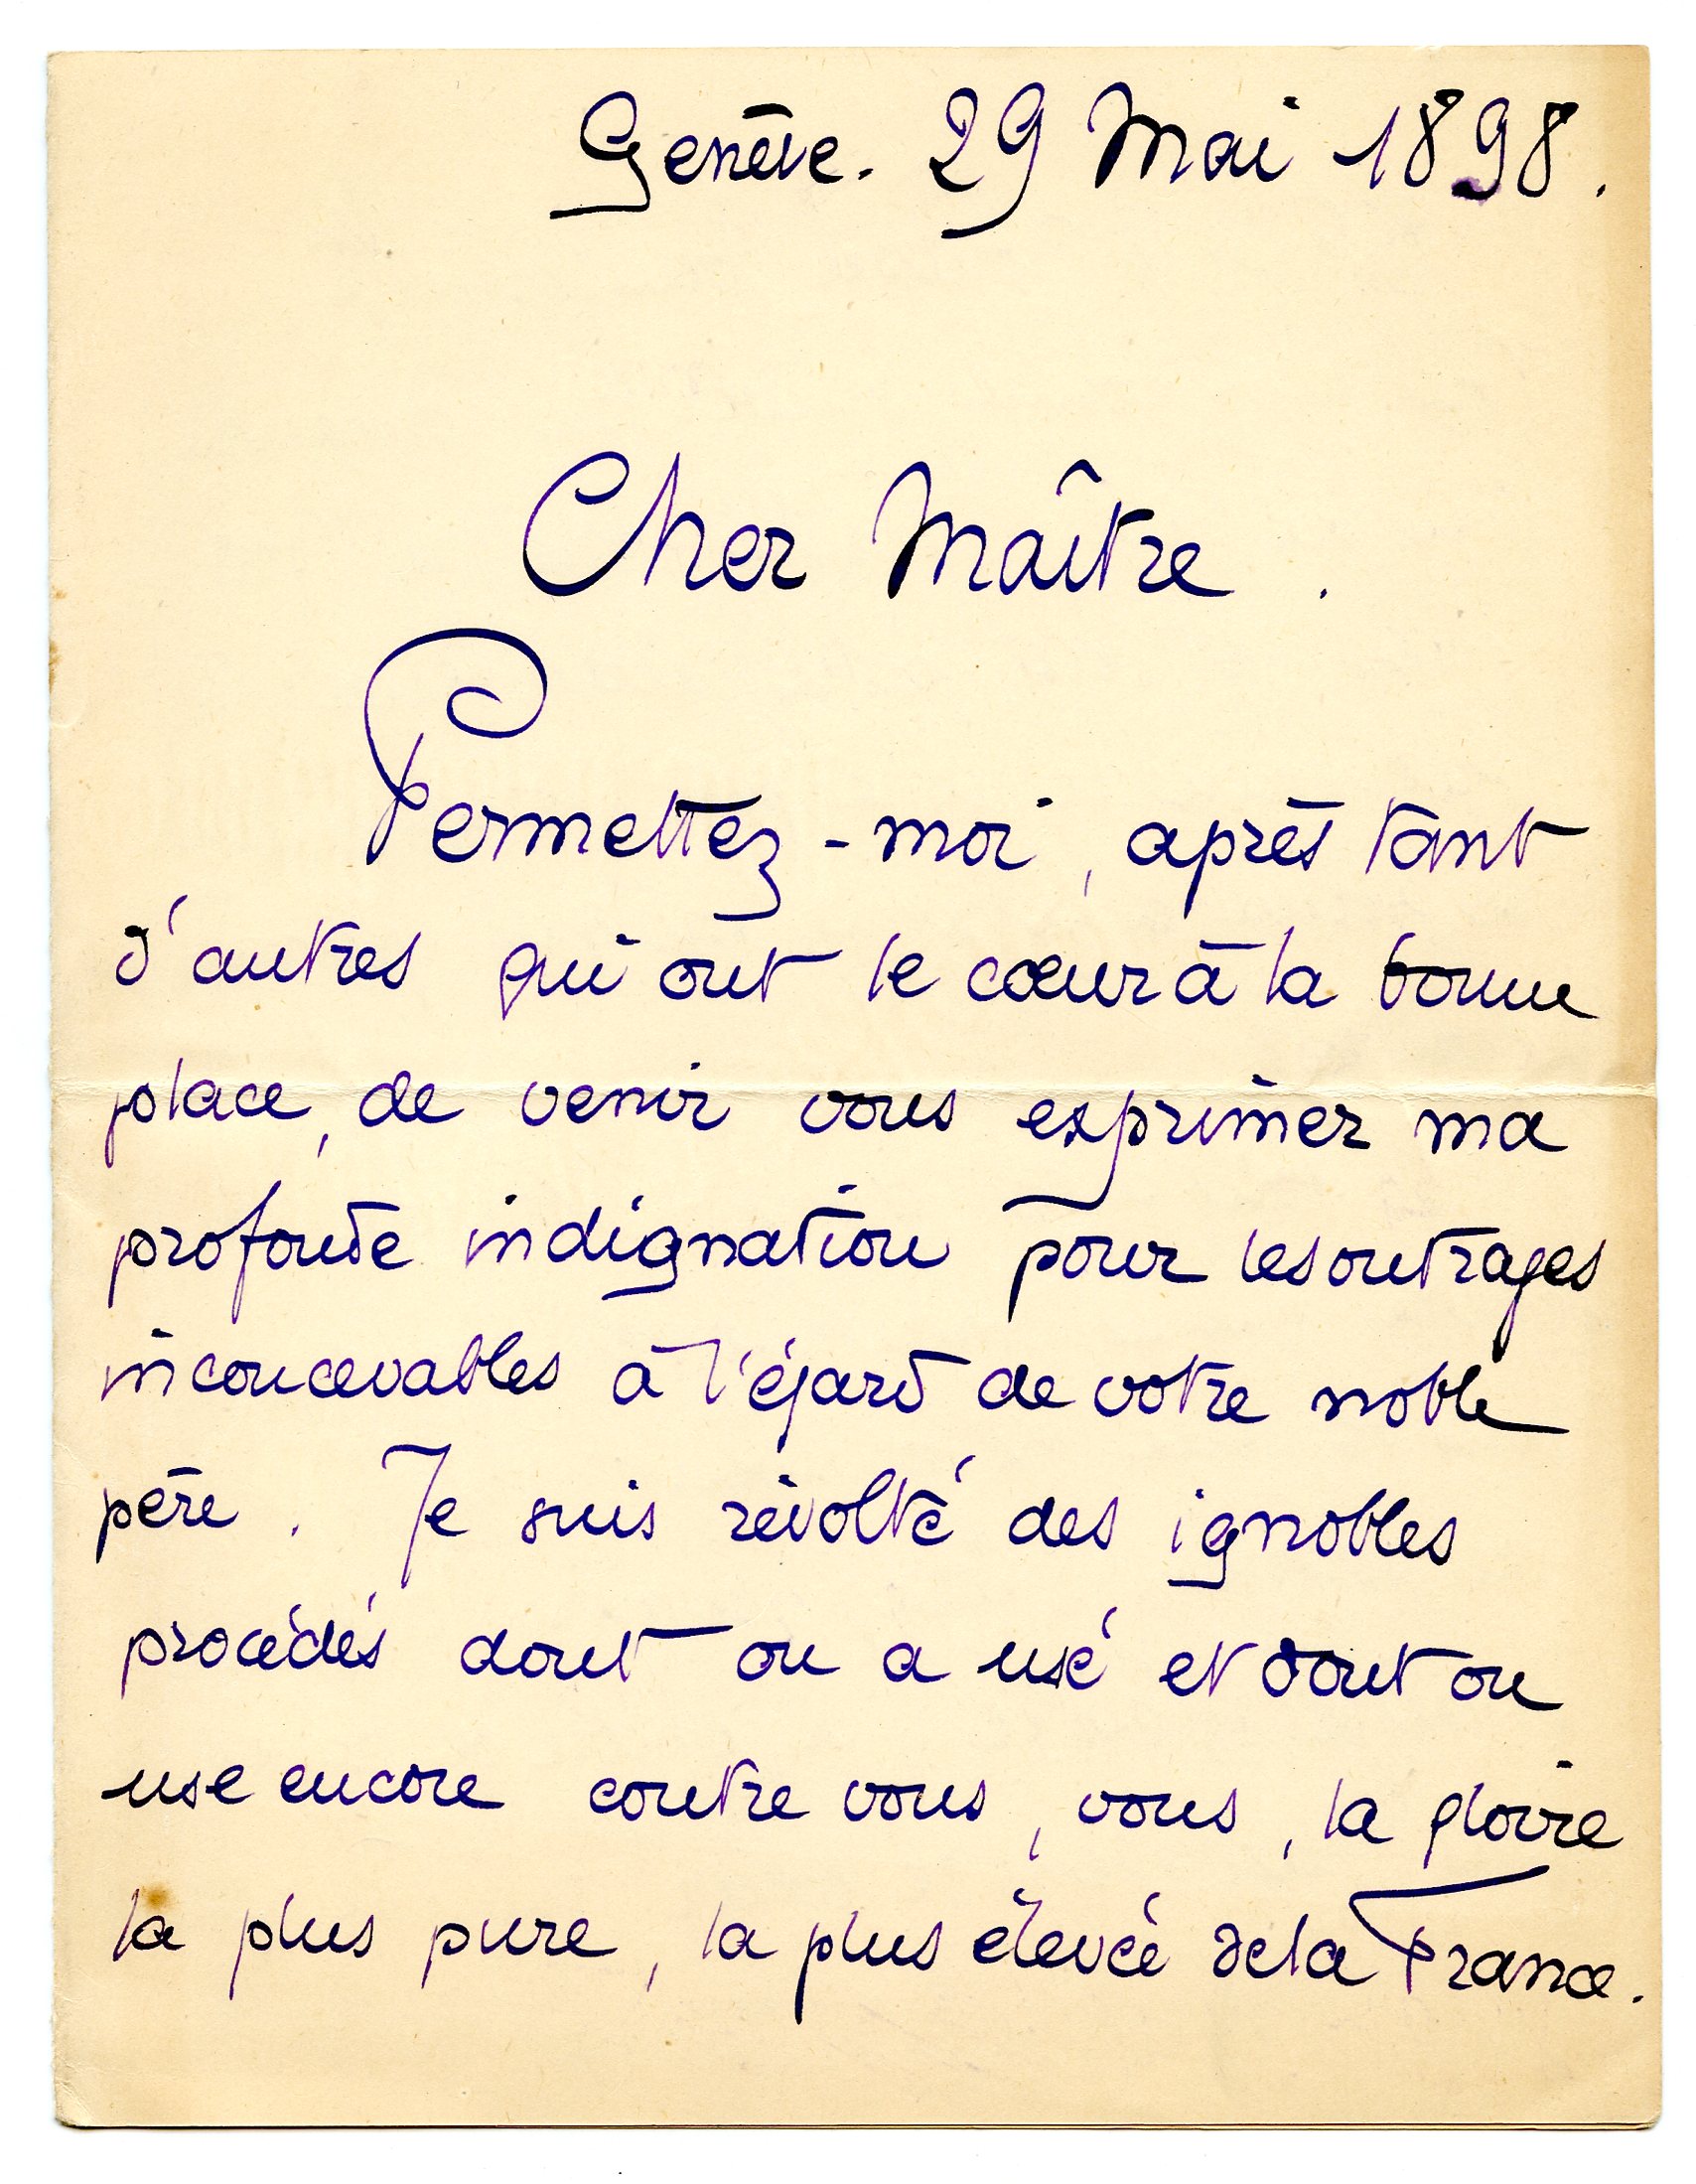 Genève. 29 Mai 1898.
Cher Maître.
Permettez-moi, après tant
d'autres qui ont le cœur à la bonne
place, de venir vous exprimer ma
profonde indignation pour les outrages
inconcevables à l'égard de votre noble
père. Je suis révolté des ignobles
procédés dont on a usé et dont on
use encore contre vous, vous, la gloire
la plus pure, la plus élevée de la France.